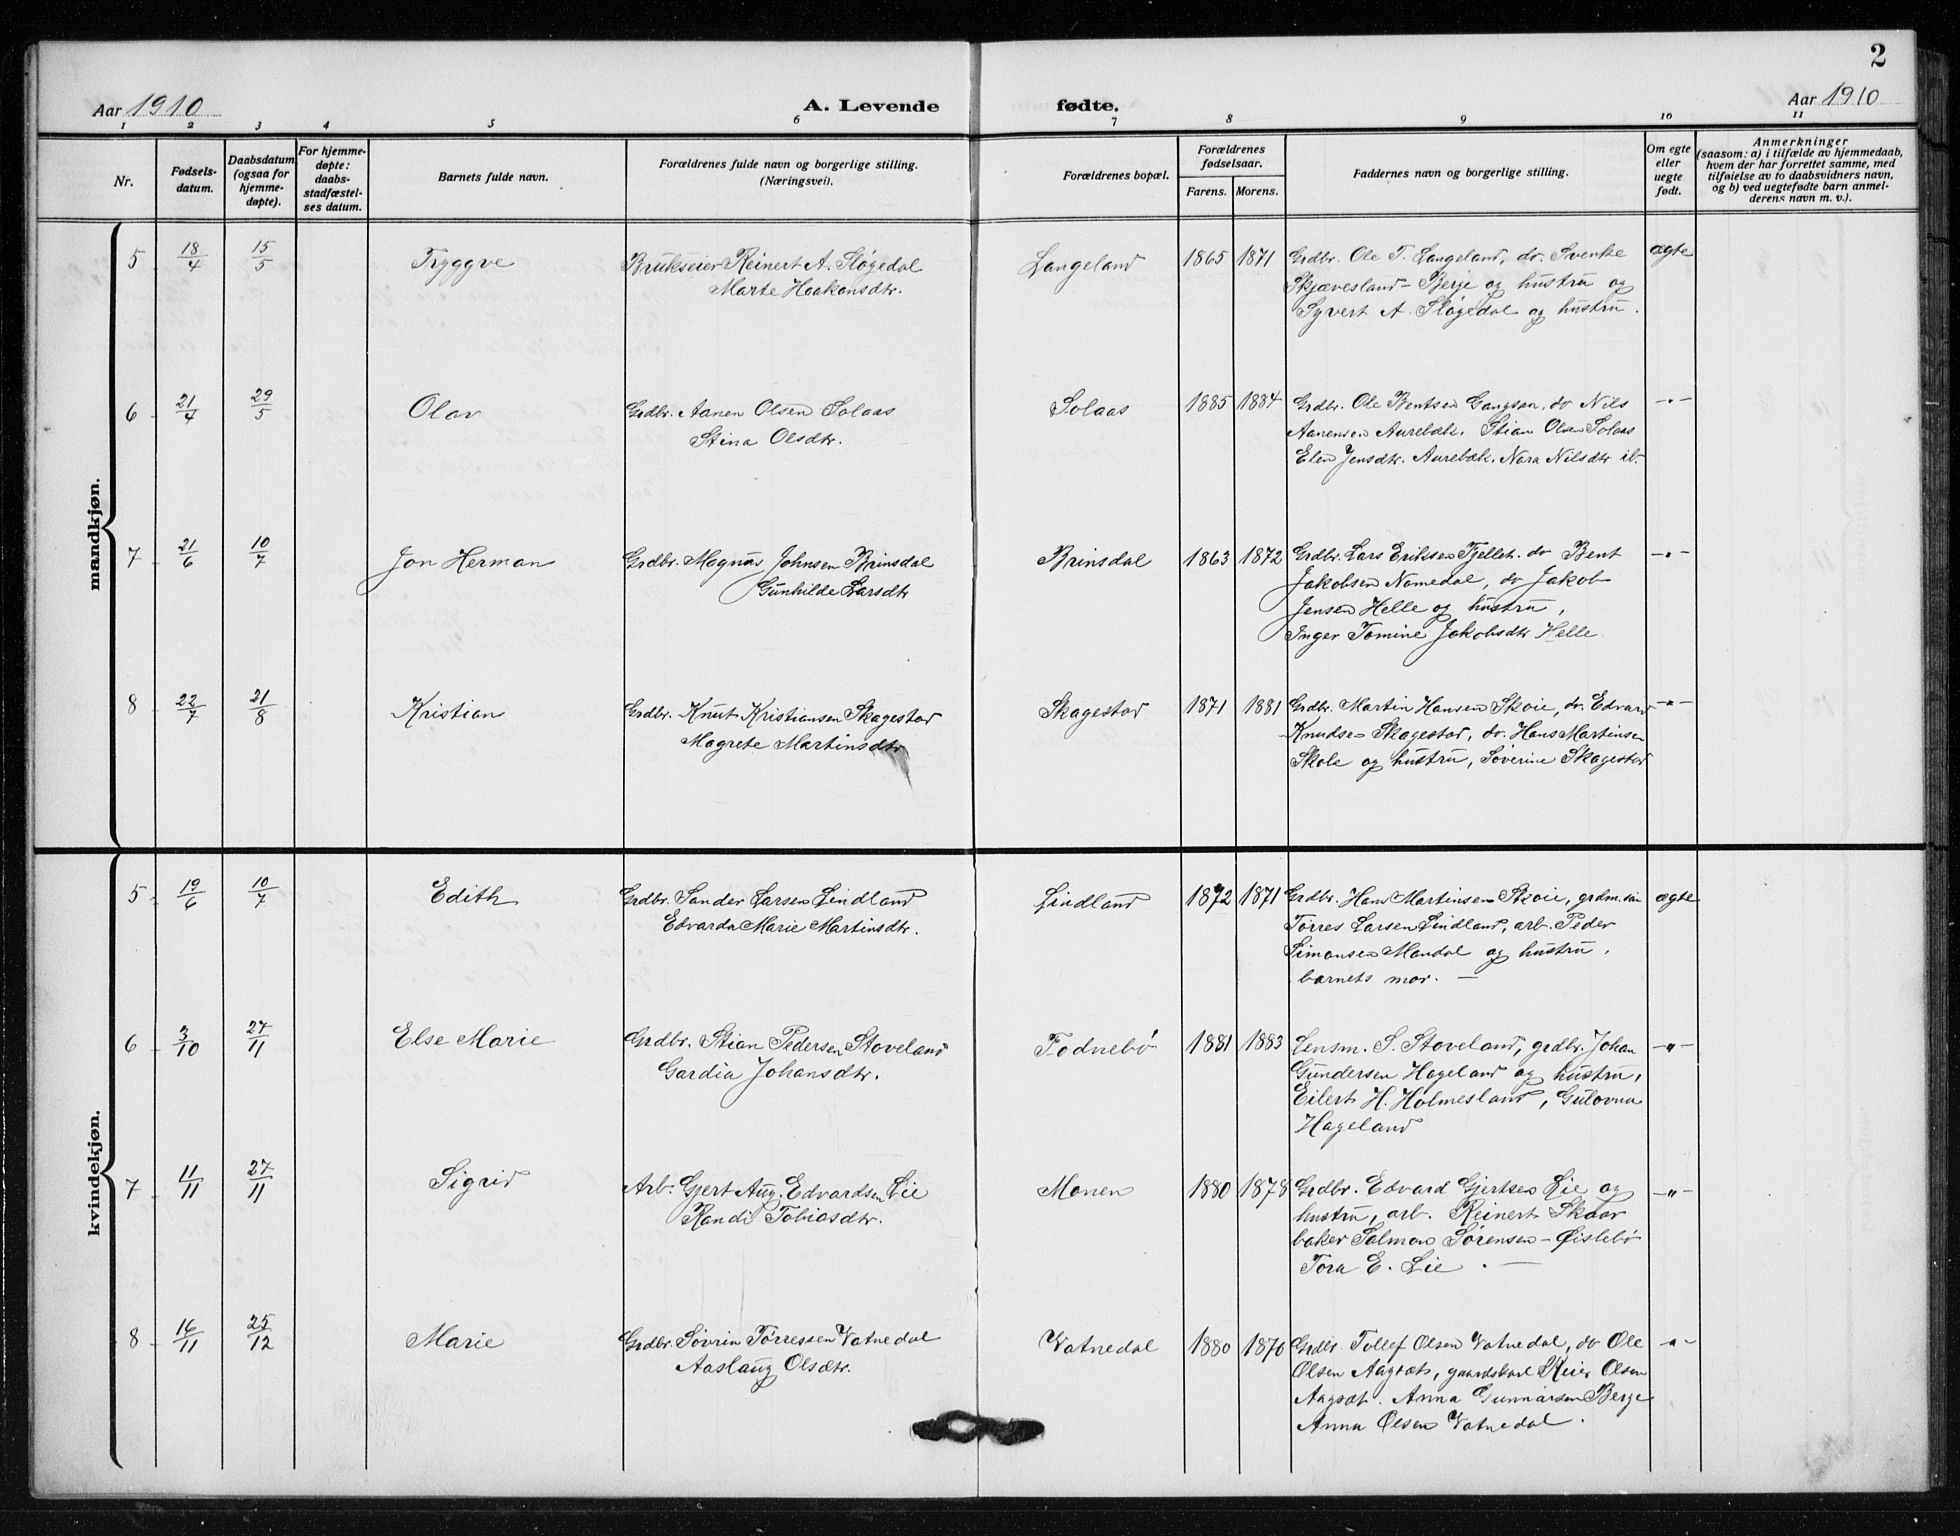 2
Aar 1910
A. Levende fødte.
Aar 1910
1 2 3 4 5 6 7 8 9 10 11
Nr.
Fødsels-
datum.
Daabsdatum
(ogsaa for
hjemme-
døpte).
For hjemme-
døpte:
daabs-
stadfæstel-
ses datum.
Barnets fulde navn.
Forældrenes fulde navn og borgerlige stilling.
(Næringsvei).
Forældrenes bopæl.
Forældrenes
fødselsaar.
Farens. Morens.
Faddernes navn og borgerlige stilling.
Om egte
eller
uegte
født.
Anmerkninger
(saasom: a) i tilfælde av hjemmedaab,
hvem der har forrettet samme, med
tilføielse av to daabsvidners navn,
og b) ved uegtefødte barn anmel-
derens navn m. v.).
mandkjøn.
5 18/4 15/5 Tryggve
Brukseier Reinert A. Sløgedal
Marte Haakonsdtr.
Langeland 1865 1871
Grdbr. Ole T. Langeland, do. Svenke
Skjævesland - Berje og hustru og
Syvert A. Sløgedal og hustru.
ægte
6 21/4 29/5 Olav
Grdbr. Aanen Olsen Solaas
Stina Olsdtr.
Solaas 1885 1884
Grdbr. Ole Bentsen Gangsaa, do Nils
Aanensen Aurebæk. Stian Olsen Solaas
Elen Jensdtr. Aurebæk. Nara Nilsdtr ib.
-"-
7 21/6 10/7 Jon Herman
Grdbr. Magnus Johnsen Brinsdal
Gunhilde Larsdtr
Brinsdal 1863 1872
Grdbr. Lars Eriksen Fjellet. do Bent
Jakobsen Namedal, do Jakob
Jensen Helle og hustru,
Inger Tomine Jakobsdtr Helle.
-"-
8 22/7 21/8 Kristian
Grdbr. Knut Kristiansen Skagestad
Magrete Martinsdtr
Skagestad 1871 1881
Grdbr. Martin Hansen Skoie, do. Edvard
Knudsen Skagestad, do. Hans Martinsen
Skoie og hustru, Søverine Skagestad
-"-
kvindekjøn.
5 19/6 10/7 Edith
Grdbr. Sander Larsen Lindland
Edvarda Marie Martinsdtr.
Lindland 1872 1871
Grdbr. Hans Martinsen Skoie, grdm.søn
Tørres Larsen Lindland, arb. Peder
Simonsen Mandal og hustru,
barnets mor. —
ægte
6 3/10 27/11 Else Marie
Grdbr. Stian Pedersen Stoveland
Gardia Johansdtr.
Fodnebø 1881 1883
Lensm. S. Stoveland, grdbr. Johan
Gundersen Hageland og hustru,
Eilert H. Holmesland, Gulovna
Hageland
-"-
7 4/11 27/11 Sigrid
Arb. Gjert Aug. Edvardsen Lie
Randi Tobiasdtr.
Monen 1880 1878
Grdbr. Edvard Gjertsen Lie og
hustru, arb. Reinert Skaar
baker Salman Sørensen - Øislebø
Tora E. Lie. —
-"-
8 16/11 25/12 Marie
Grdbr. Søvrin Tørressen Vatnedal
Aaslaug Olsdtr.
Vatnedal 1880 1870
Grdbr. Tollef Olsen Vatnedal, do Ole
Olsen Aagsæt, gaardskarl Reier Olsen
Aagsæt. Anna Gunnarsen Berge
Anna Olsen Vatnedal.
-"-